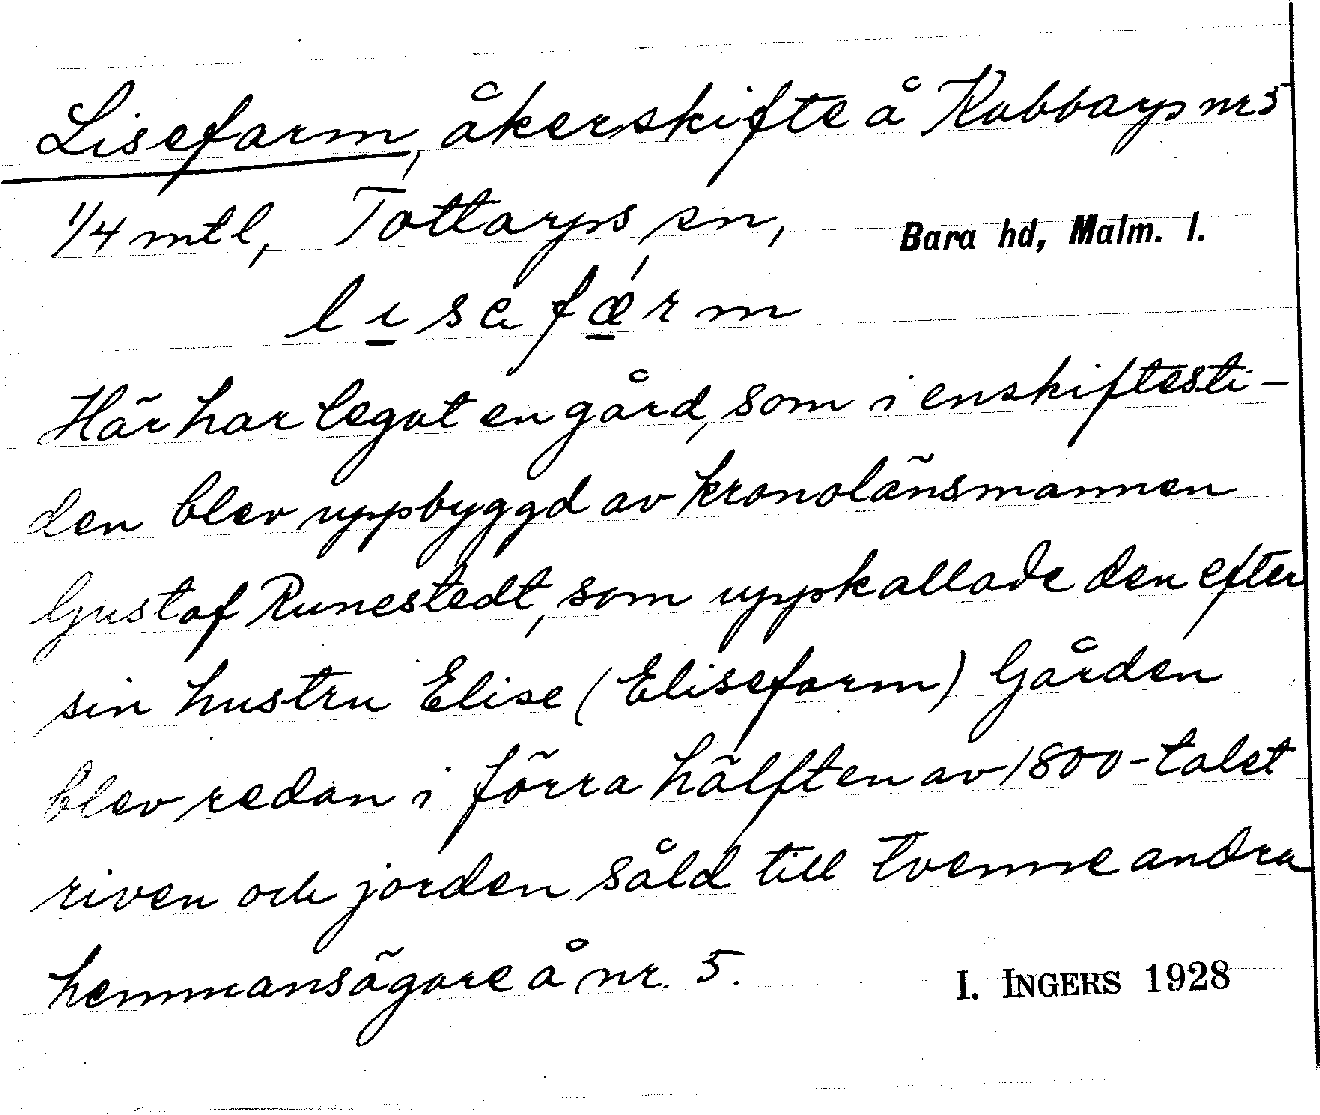 Lisefarm, åkerskifte å Kabbarps nr 5
1/4 mtl, Tottarps sn, Bara hd, Malm. l.
Här har legat en gård, som i enskiftesti-
den blev uppbyggd av kronolänsmannen
Gustaf Runestedt, som uppkallade den efter
sin hustru Elise (Elisefarm) Gården
blev redan i förra hälften av 1800-talet
riven och jorden såld till tvenne andra
hemmansägare å nr. 5. I. INGERS 1928